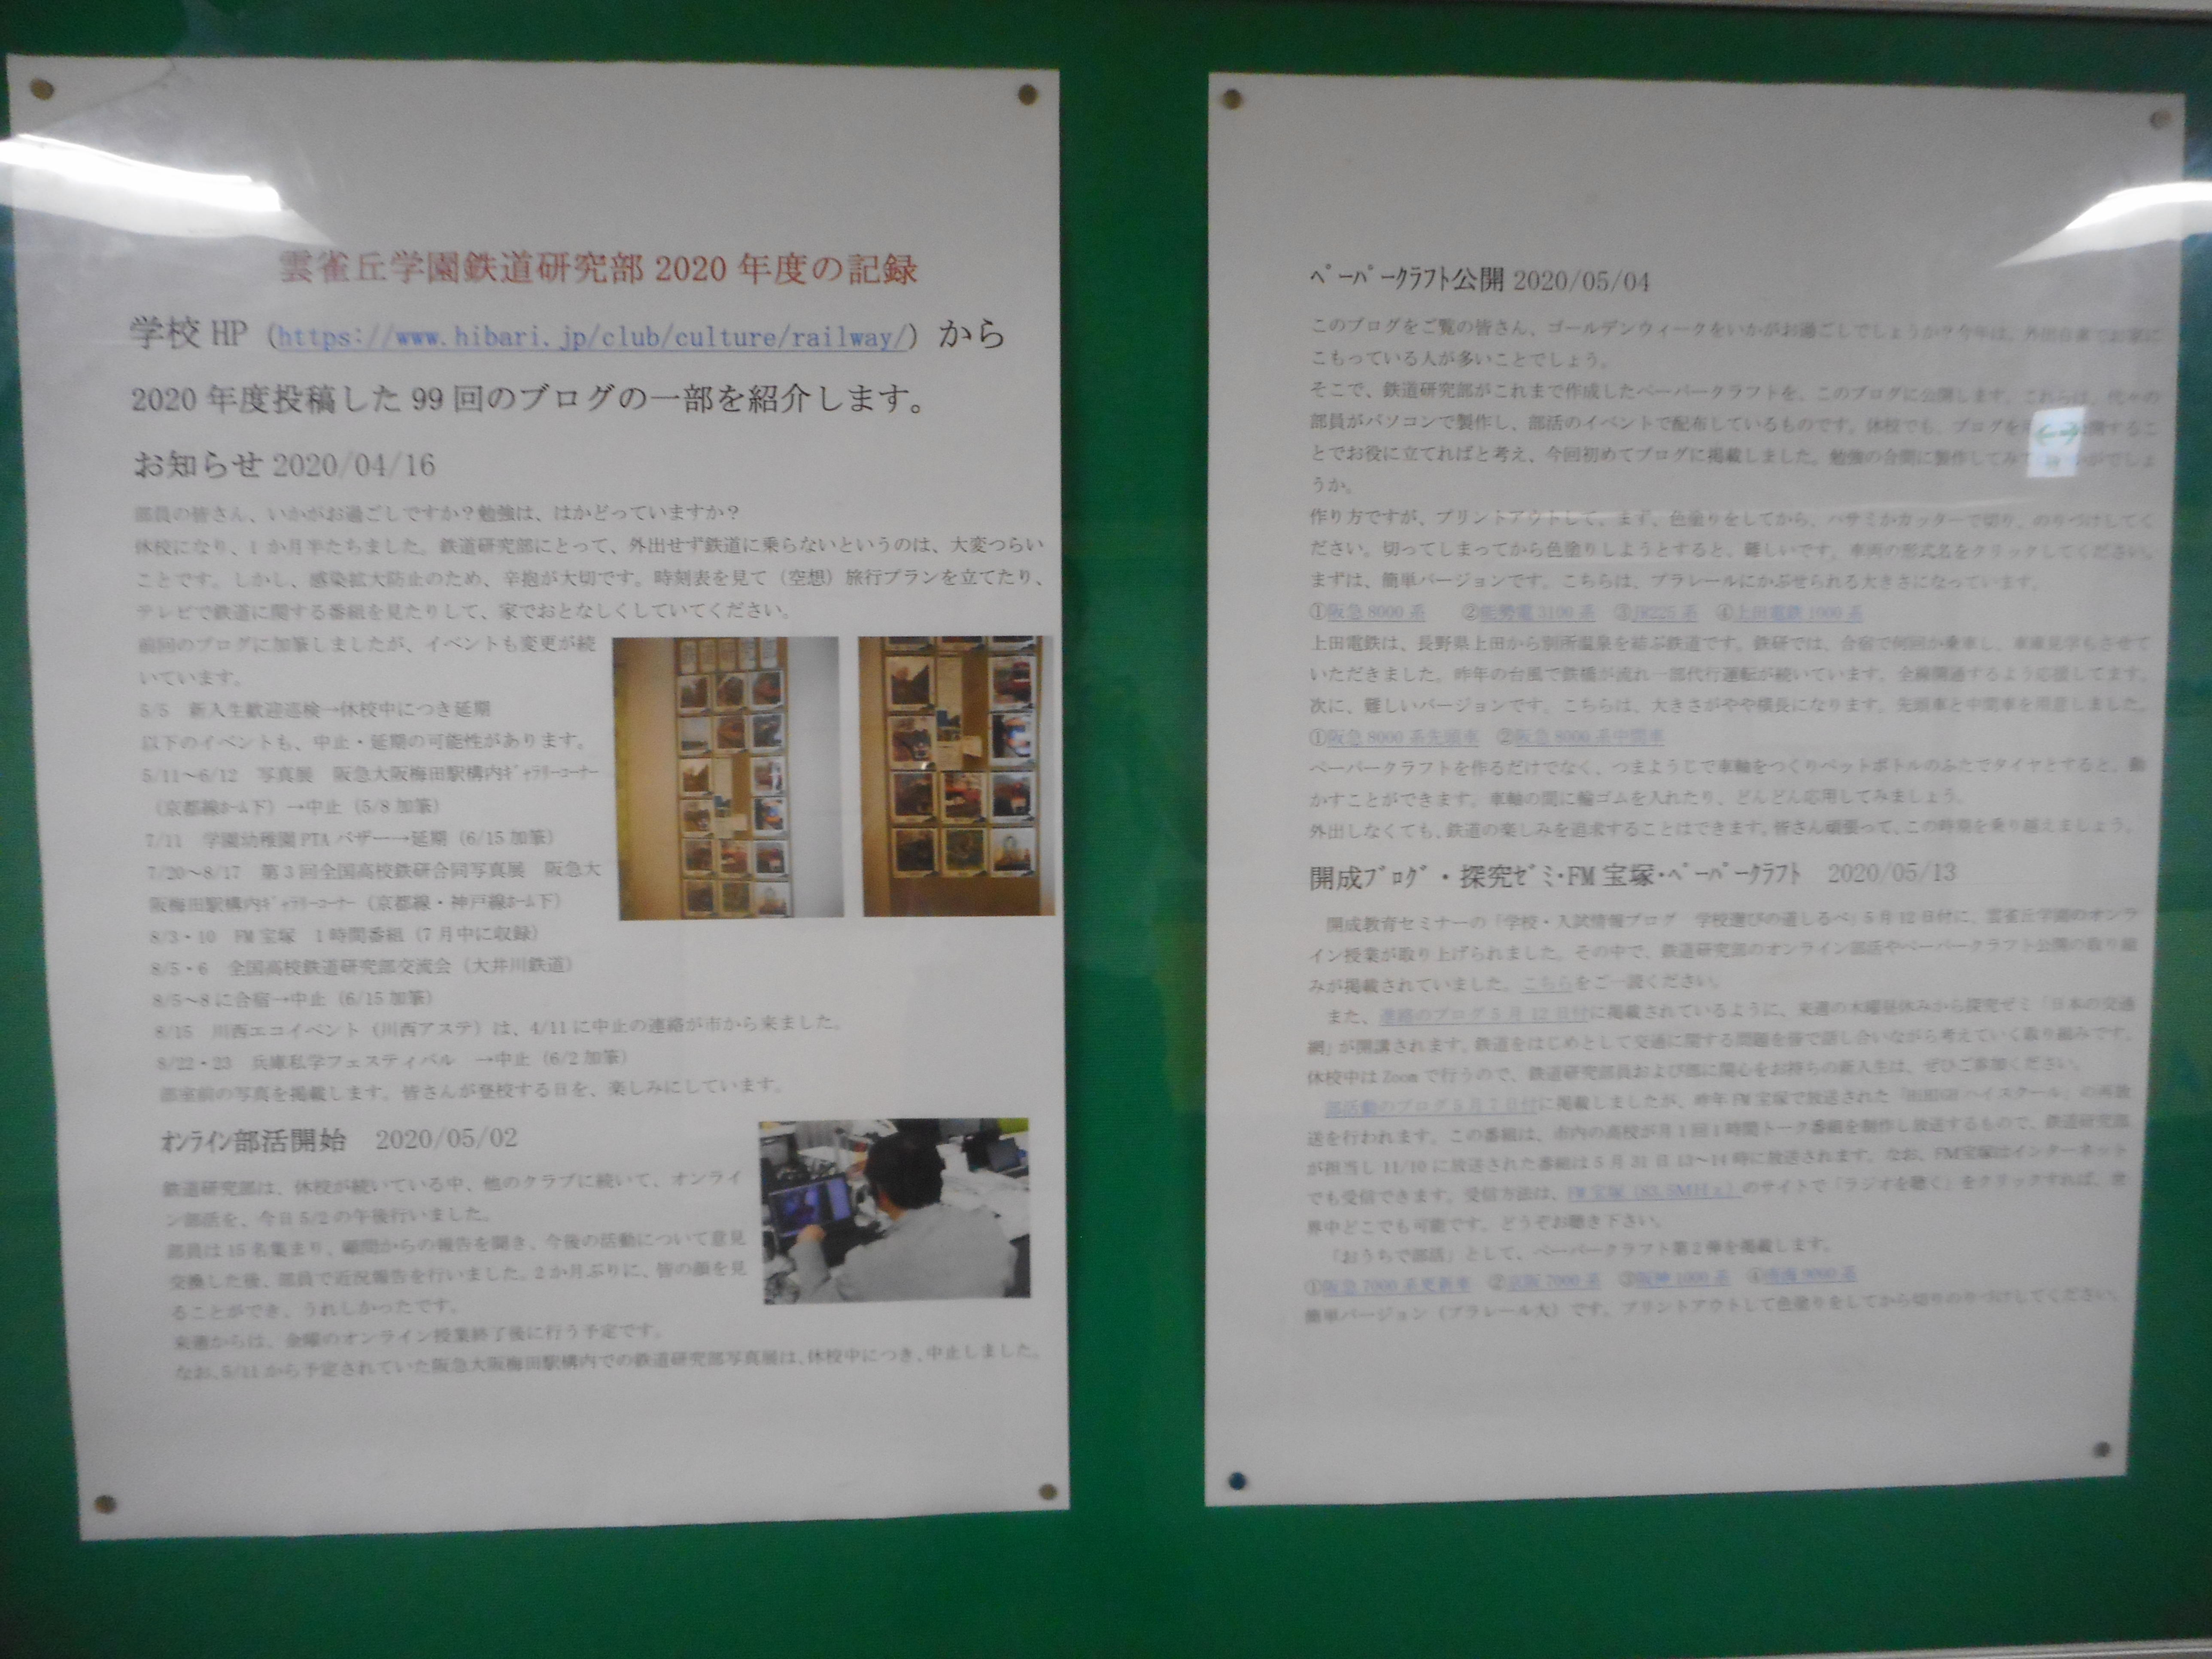 雲雀丘学園鉄道研究部 2020 年度の記録
学校 HP（https://www.hibari.jp/club/culture/railway/）から
2020 年度投稿した 99 回のブログの一部を紹介します。
お知らせ 2020/04/16
部員の皆さん、いかがお過ごしですか？勉強は、はかどっていますか？
休校になり、1 か月半たちました。鉄道研究部にとって、外出せず鉄道に乗らないというのは、大変つらい
ことです。しかし、感染拡大防止のため、辛抱が大切です。時刻表を見て（空想）旅行プランを立てたり、
テレビで鉄道に関する番組を見たりして、家でおとなしくしていてください。
前回のブログに加筆しましたが、イベントも変更が続
いています。
5/5　新入生歓迎巡検→休校中につき延期
以下のイベントも、中止・延期の可能性があります。
5/11～6/12　写真展　阪急大阪梅田駅構内ｷﾞｬﾗﾘｰｺｰﾅｰ
（京都線ﾎｰﾑ下）→中止（5/8 加筆）
7/11　学園幼稚園 PTA バザー→延期（6/15 加筆）
7/20～8/17　第 3 回全国高校鉄研合同写真展　阪急大
阪梅田駅構内ｷﾞｬﾗﾘｰｺｰﾅｰ（京都線・神戸線ﾎｰﾑ下）
8/3・10　FM 宝塚　1 時間番組（7 月中に収録）
8/5・6　全国高校鉄道研究部交流会（大井川鉄道）
8/5～8 に合宿→中止（6/15 加筆）
8/15　川西エコイベント（川西アステ）は、4/11 に中止の連絡が市から来ました。
8/22・23　兵庫私学フェスティバル　→中止（6/2 加筆）
部室前の写真を掲載します。皆さんが登校する日を、楽しみにしています。
ｵﾝﾗｲﾝ部活開始　2020/05/02
鉄道研究部は、休校が続いている中、他のクラブに続いて、オンライ
ン部活を、今日 5/2 の午後行いました。
部員は 15 名集まり、顧問からの報告を聞き、今後の活動について意見
交換した後、部員で近況報告を行いました。2 か月ぶりに、皆の顔を見
ることができ、うれしかったです。
来週からは、金曜のオンライン授業終了後に行う予定です。
なお、5/11 から予定されていた阪急大阪梅田駅構内での鉄道研究部写真展は、休校中につき、中止しました。
ﾍﾟｰﾊﾟｰｸﾗﾌﾄ公開 2020/05/04
このブログをご覧の皆さん、ゴールデンウィークをいかがお過ごしでしょうか？今年は、外出自粛でお家に
こもっている人が多いことでしょう。
そこで、鉄道研究部がこれまで作成したペーパークラフトを、このブログに公開します。これらは、代々の
部員がパソコンで製作し、部活のイベントで配布しているものです。休校でも、ブログを
とでお役に立てればと考え、今回初めてブログに掲載しました。勉強の合間に製作してみて
うか。
作り方ですが、プリントアウトして、まず、色塗りをしてから、ハサミかカッターで切り、のりづけしてく
ださい。切ってしまってから色塗りしようとすると、難しいです。車両の形式名をクリックしてください。
まずは、簡単バージョンです。こちらは、プラレールにかぶせられる大きさになっています。
①阪急 8000 系　②能勢電 3100 系　③JR225 系　④上田電鉄 1000 系
上田電鉄は、長野県上田から別所温泉を結ぶ鉄道です。鉄研では、合宿で何回か乗車し、車庫見学もさせて
いただきました。昨年の台風で鉄橋が流れ一部代行運転が続いています。全線開通するよう応援してます。
次に、難しいバージョンです。こちらは、大きさがやや横長になります。先頭車と中間車を用意しました。
①阪急 8000 系先頭車　②阪急 8000 系中間車
ペーパークラフトを作るだけでなく、つまようじで車軸をつくりペットボトルのふたでタイヤとすると、動
かすことができます。車軸の間に輪ゴムを入れたり、どんどん応用してみましょう。
外出しなくても、鉄道の楽しみを追求することはできます。皆さん頑張って、この時期を乗り越えましょう。
開成ﾌﾞﾛｸﾞ・探究ｾﾞﾐ・FM 宝塚・ﾍﾟｰﾊﾟｰｸﾗﾌﾄ　2020/05/13
開成教育セミナーの「学校・入試情報ブログ　学校選びの道しるべ」5 月 12 日付に、雲雀丘学園のオンラ
イン授業が取り上げられました。その中で、鉄道研究部のオンライン部活やペーパークラフト公開の取り組
みが掲載されていました。こちらをご一読ください。
また、進路のブログ 5 月 12 日付に掲載されているように、来週の木曜昼休みから探究ゼミ「日本の交通
網」が開講されます。鉄道をはじめとして交通に関する問題を皆で話し合いながら考えていく取り組みです。
休校中は Zoom で行うので、鉄道研究部員および部に関心をお持ちの新入生は、ぜひご参加ください。
部活動のブログ 5 月 7 日付に掲載しましたが、昨年 FM 宝塚で放送された ハイスクール」の再放
送を行われます。この番組は、市内の高校が月 1 回 1 時間トーク番組を制作し放送するもので、鉄道研究部
が担当し 11/10 に放送された番組は 5 月 31 日 13～14 時に放送されます。なお、FM宝塚はインターネット
でも受信できます。受信方法は、FM 宝塚（83.5MHz）のサイトで「ラジオを聴く」をクリックすれば、世
界中どこでも可能です。どうぞお聴き下さい。
「おうちで部活」として、ペーパークラフト第 2 弾を掲載します。
①阪急 7000 系更新車　②京阪 7000 系　③阪神 1000 系　④南海 9000 系
簡単バージョン（プラレール大）です。プリントアウトして色塗りをしてから切りのりづけしてください。